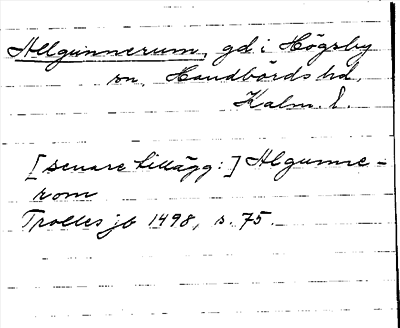 Algunnerum, gd i Högsby
sn, Handbörds hd,
Kalm. l.
[senare tillägg:] Algunne-
rom
Trolles jb 1498, s. 75.